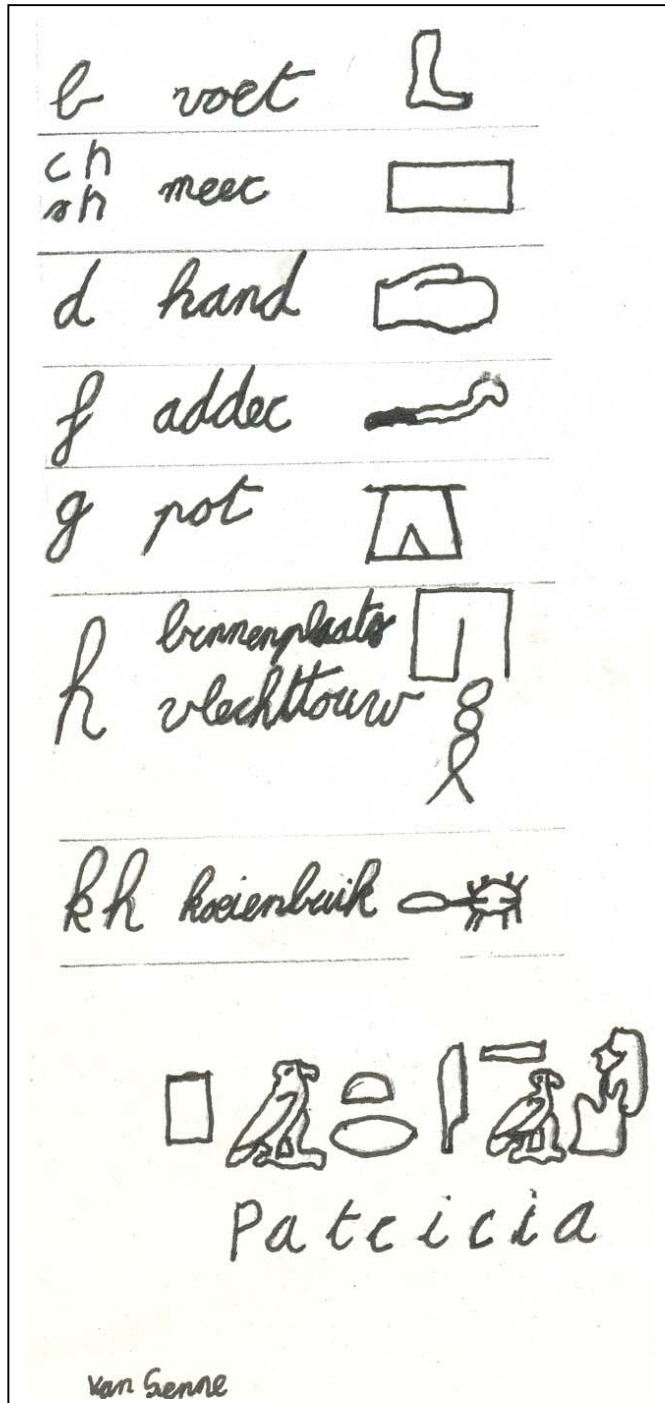 b voet
ch
sh meer
d hand
f adder
g pot
h binnenplaats
vlechttouw
kh koeienbuik
Patricia
van Senne